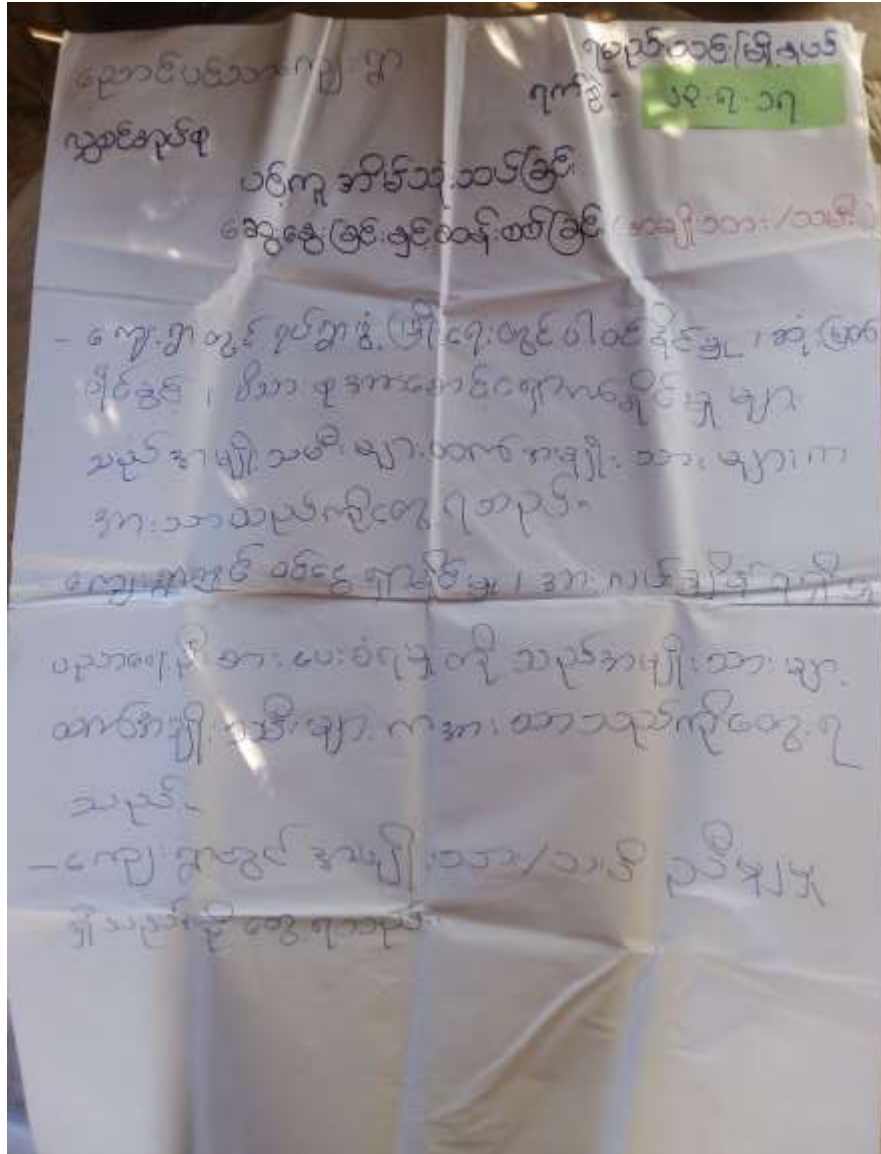 ညောင်ပင်သာကျေးရွာ
ရမည်းသင်းမြို့နယ်
ရက်စွဲ - ၁၃.၇.၁၇
လွှစင်အုပ်စု
ပင့်ကူအိမ်သုံးသပ်ခြင်း
ဆွေးနွေးခြင်းနှင့်တန်းစီခြင်း (အမျိုးသား/သမီး)
- ကျေးရွာတွင် ရပ်ရွာဖွံ့ဖြိုးရေးတွင်ပါဝင်နိုင်မှု၊ ဆုံးဖြတ်
ပိုင်ခွင့်၊ မိသားစုအားစောင့်ရှောက်နိုင်မှုများ
သည် အမျိုးသမီးများထက် အမျိုးသားများက
အားသာသည်ကိုတွေ့ရသည်။
ကျေးရွာတွင် ဝင်ငွေရှာနိုင်မှု၊ အားလပ်ချိန်ရရှိမှု
ပညာရေး အားပေးခံရမှုတို့သည်အမျိုးသားများ
ထက်အမျိုးသမီးများကအားသာသည်ကိုတွေ့ရ
သည်။
- ကျေးရွာတွင် အမျိုးသား/သမီး ညီမျှမှု
ရှိသည်ကို တွေ့ရသည်။